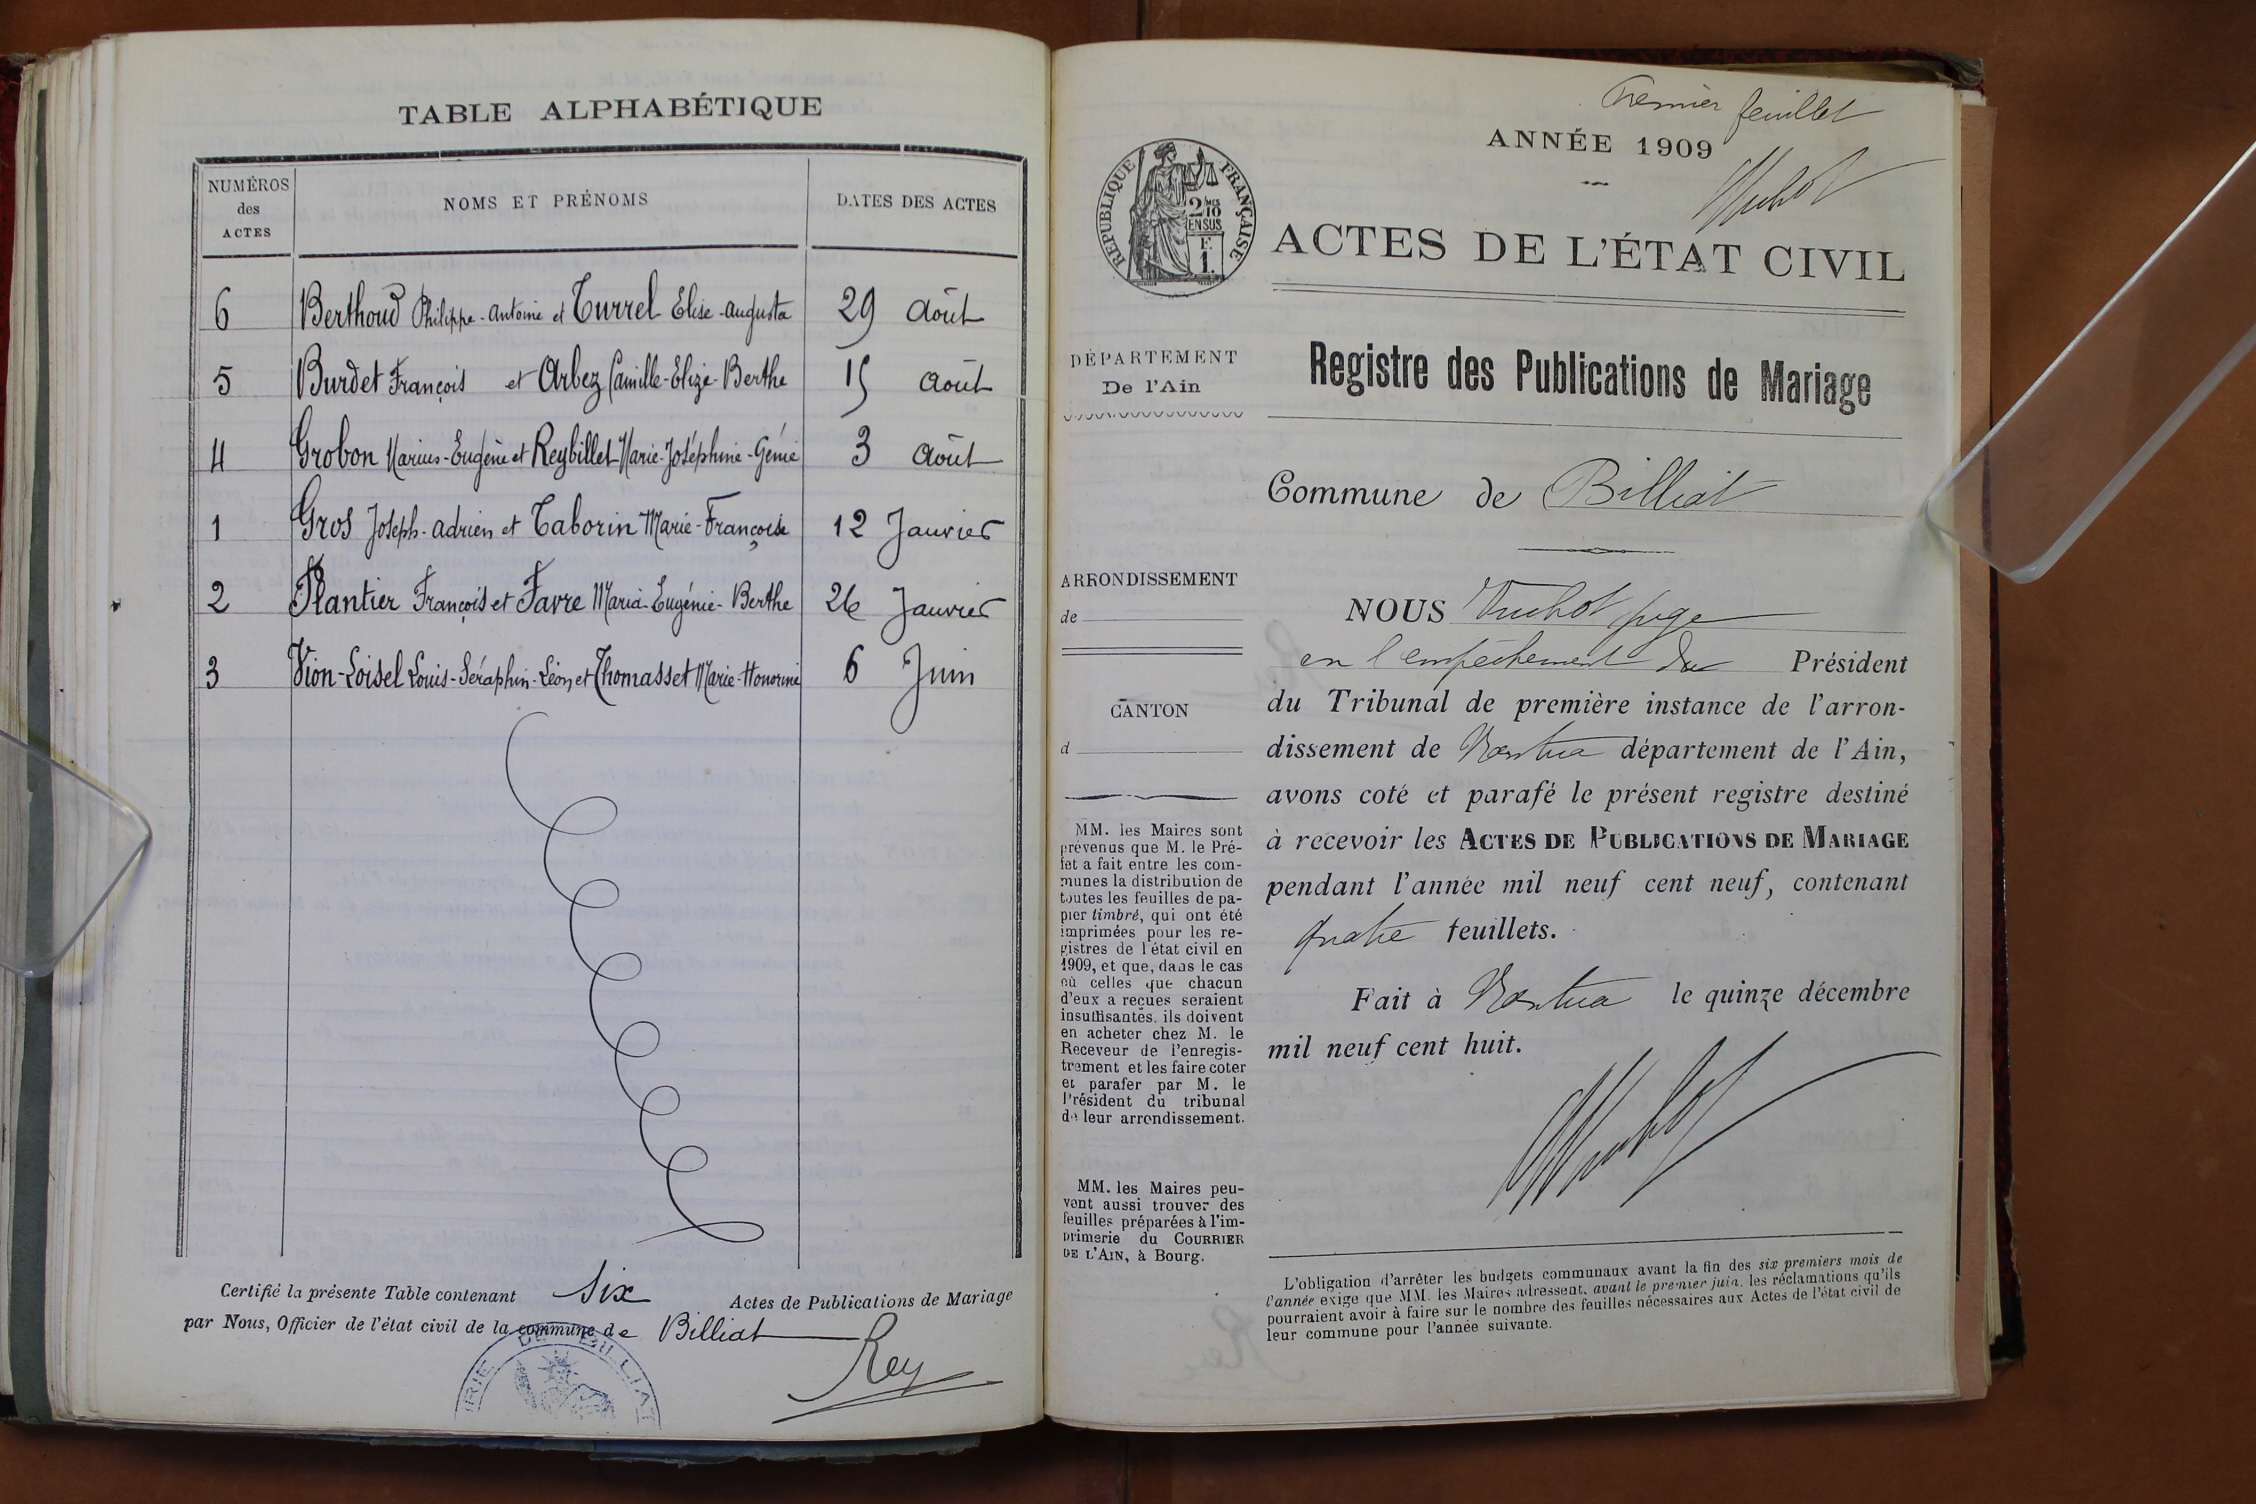 TABLE ALPHABÉTIQUE
NUMÉROS des ACTES
NOMS ET PRÉNOMS
DATES DES ACTES
6 Berthoud Philippe-Antoine et Turrel Elise-Augusta 29 Août
5 Burdet François et Arbez Camille-Elize-Berthe 15 Août
4 Grobon Marius-Eugène et Reybillet Marie-Joséphine-Génie 3 Août
1 Gros Joseph-Adrien et Taborin Marie-Françoise 12 Janvier
2 Plantier François et Favre Maria-Eugénie-Berthe 26 Janvier
3 Vion-Loisel Louis-Séraphin-Léon et Thomasset Marie-Honorine 6 Juin
Certifié la présente Table contenant six Actes de Publications de Mariage
par Nous, Officier de l'état civil de la commune de Billiat
Rey
RIE DE BILLIAT
Premier feuillet
ANNÉE 1909
RÉPUBLIQUE FRANÇAISE
2/10
EN SUS
F.
1.
ACTES DE L'ÉTAT CIVIL
DÉPARTEMENT
De l'Ain
Registre des Publications de Mariage
Commune de Billiat
ARRONDISSEMENT
de
CANTON
d
MM. les Maires sont
prévenus que M. le Pré-
fet a fait entre les com-
munes la distribution de
toutes les feuilles de pa-
pier timbré, qui ont été
imprimées pour les re-
gistres de l'état civil en
1909, et que, dans le cas
où celles que chacun
d'eux a reçues seraient
insuffisantes, ils doivent
en acheter chez M. le
Receveur de l'enregis-
trement et les faire coter
et parafer par M. le
Président du tribunal
de leur arrondissement.
MM. les Maires peu-
vent aussi trouver des
feuilles préparées à l'im-
primerie du COURRIER
DE L'AIN, à Bourg.
NOUS juge
en l'empêchement du Président
du Tribunal de première instance de l'arron-
dissement de Nantua département de l'Ain,
avons coté et parafé le présent registre destiné
à recevoir les ACTES DE PUBLICATIONS DE MARIAGE
pendant l'année mil neuf cent neuf, contenant
quatre feuillets.
Fait à Nantua le quinze décembre
mil neuf cent huit.
L'obligation d'arrêter les budgets communaux avant la fin des six premiers mois de
l'année exige que MM. les Maires adressent, avant le premier juin, les réclamations qu'ils
pourraient avoir à faire sur le nombre des feuilles nécessaires aux Actes de l'état civil de
leur commune pour l'année suivante.